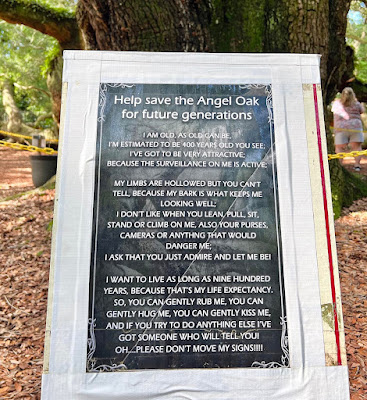 Help save the Angel Oak
for future generations
I AM OLD, AS OLD CAN BE.
I'M ESTIMATED TO BE 400 YEARS OLD YOU SEE;
I'VE GOT TO BE VERY ATTRACTIVE;
BECAUSE THE SURVEILLANCE ON ME IS ACTIVE;
MY LIMBS ARE HOLLOWED BUT YOU CAN'T
TELL, BECAUSE MY BARK IS WHAT KEEPS ME
LOOKING WELL;
I DON'T LIKE WHEN YOU LEAN, PULL, SIT,
STAND OR CLIMB ON ME, ALSO YOUR PURSES,
CAMERAS OR ANYTHING THAT WOULD
DANGER ME;
I ASK THAT YOU JUST ADMIRE AND LET ME BE!
I WANT TO LIVE AS LONG AS NINE HUNDRED
YEARS, BECAUSE THAT'S MY LIFE EXPECTANCY.
SO, YOU CAN GENTLY RUB ME, YOU CAN
GENTLY HUG ME, YOU CAN GENTLY KISS ME,
AND IF YOU TRY TO DO ANYTHING ELSE I'VE
GOT SOMEONE WHO WILL TELL YOU!
OH....PLEASE DON'T MOVE MY SIGNS!!!!